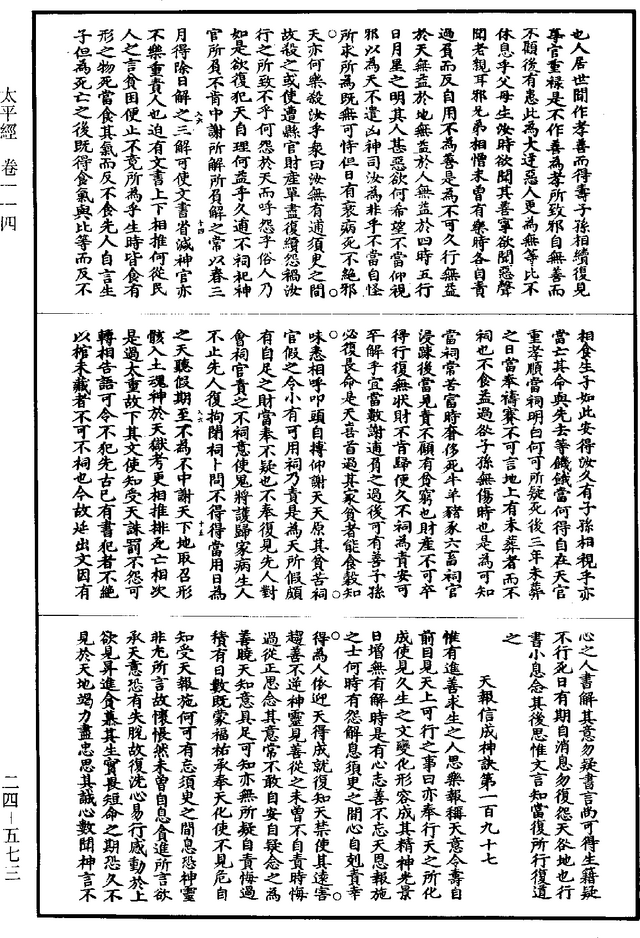 太平經 卷一一四
二四－五七三
也人居世間作孝善而得壽子孫相續復見
尊官重祿是不作善為孝所致邪自無善而
不顧後有患此為大逆惡人更為無等比不
休息乎父母生汝時欲聞其善寧欲聞惡聲
聞老親耳邪兄弟相憎未曾有樂時各自責
過負而反自用不為善是為不可久行無益
於天無益於地無益於人無益於四時五行
日月星之明其人甚惡欲何希望不當仰視
邪以為天不遣凶神司汝為非乎不當自怪
所求所為既無可恃但日有衰病死不絕邪
天亦何樂殺汝乎衆曰汝無有逋須臾之間
故殺之或使遭縣官財產單盡復續怨禍汝
行之所致不乎何怨於天而呼怨乎俗人乃
如是欲復犯天自理何益乎久逋不祠祀神
官所負不肯中謝所解所負解之常以春三
月得除日解之三解可使文書省減神官亦
不樂重責人也迫有文書上下相推何從民
人之言貧困便止不竟所為乎生時皆食有
形之物死當食其氣而反不食先人自言生
子但為死亡之後既得食氣與比等而反不
相食生子如此安得汝久有子孫相視乎亦
當亡其命與先去等饑餓當何得自在天官
重孝順當祠明白何可所疑死後三年未葬
之日當奉禱賽不可言地上有未葬者而不
祠也不食益過欲子孫無傷時也是為可知
當祠常苦富時奢侈死牛羊豬豕六畜祠官
浸踈後當見責不顧有貧窮也財產不可卒
得行復無狀財不言歸便久不祠為責安可
卒解乎宜當數謝逋負之過後可有善子孫
必復長命是天喜首過其家貧者能食穀知
味悉相呼叩頭自搏仰謝天天原其貧苦祠
官假之令小有可用祠乃責是為天所假頗
有自足之財當奉不疑也不奉復見先人對
會祠官責之不祠意使鬼將護歸家病生人
不止先人復拘閉祠卜問不得得當用日為
之天聽假期至不為不中謝天下地取召形
骸入土魂神於天獄考更相推排死亡相次
是過太重故下其文使知受天誅罰不怨可
轉相告語可令不犯先古已有書犯者不絕
以棺未藏者不可不祠也今故延出文因有
心之人書解其意勿疑書言尚可得生籍疑
不行死日有期自消息勿復怨天咎地也行
書小息念其後思惟文言知當復所行復道
之
天報信成神訣第一百九十七
惟有進善求生之人思樂報稱天意令壽自
前目見天上可行之事曰亦奉行天之所化
成使見久生之文變化形容成其精神光景
日增無有解時是有心志善不忘天恩報施
之士何時有怨解息須臾之間心自剋責幸
得為人依迎天得成就復知天禁使其遠害
趨善不逆神靈見善從之未曾不自責時悔
過從正思念其意常不敢自安自疑念之為
善曉天知意具足可知亦無所疑自責悔過
積有日數既蒙福祐承奉天化使不見危自
知受天報施何可有忘須史之間息恐神靈
非尤所言故懷悵然未曾自息貪進所言欲
承天意恐有失脫故復洗心易行感動於上
欲見昇進貪慕其生實畏短命之期恐久不
見於天地竭力盡忠思其誠心數聞神言不